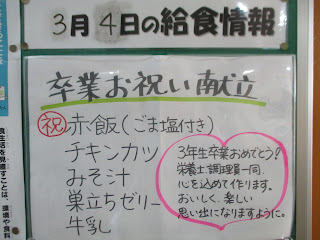 3月4日の給食情報
卒業お祝い献立
祝 赤飯(ごま塩付き)
チキンカツ
みそ汁
巣立ちゼリー
牛乳
3年生卒業おめでとう!
栄養士、調理員一同、
心を込めて作ります。
おいしく、楽しい
思い出になりますように。
食生活を見直すことは、環境や食料